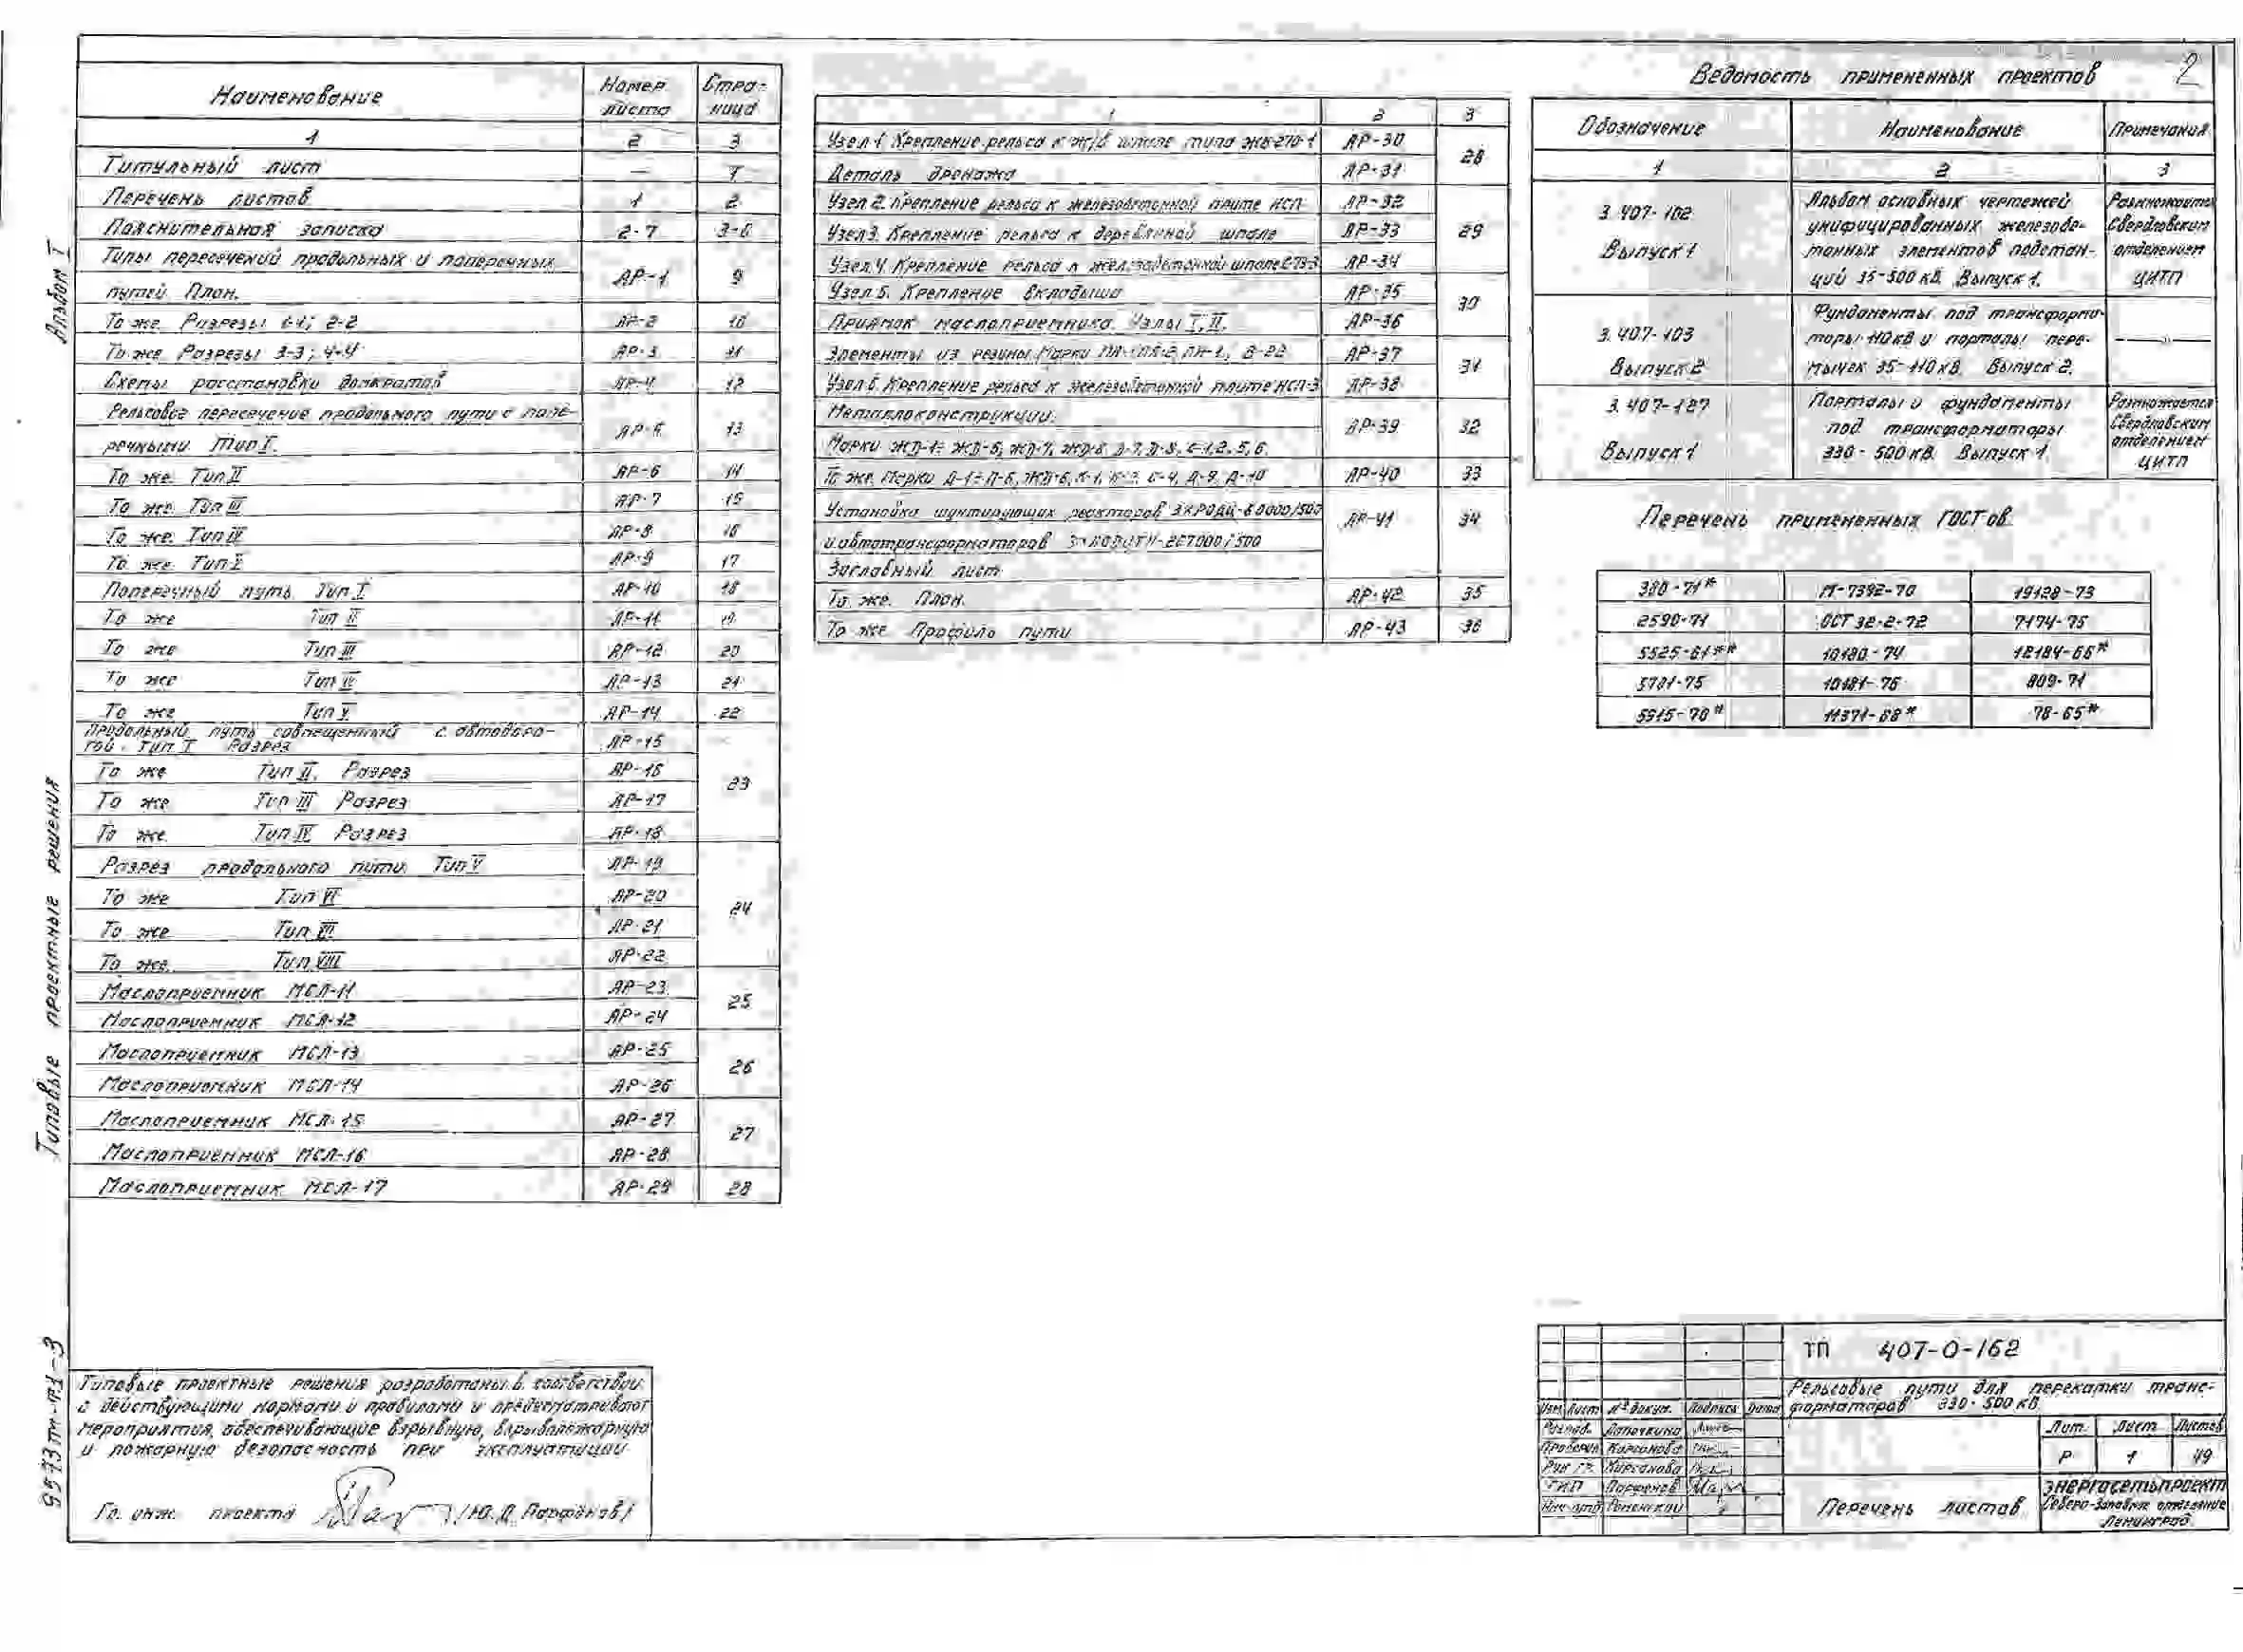 2
Альбом I
Типовые проектные решения
9573тм-т1-3
Наименование Номер листа Страница
1 2 3
Титульный лист — 1
Перечень листов 1 2
Пояснительная записка 2-7 3-8
Типы пересечений продольных и поперечных
путей. План. АР-1 9
То же. Разрезы 1-1; 2-2 АР-2 10
То же. Разрезы 3-3; 4-4 АР-3 11
Схемы расстановки домкратов АР-4 12
Рельсовое пересечение продольного пути с попе-
речными. Тип I. АР-5 13
То же. Тип II АР-6 14
То же. Тип III АР-7 15
То же. Тип IV АР-8 16
То же. Тип V АР-9 17
Поперечный путь. Тип I АР-10 18
То же Тип II АР-11 19
То же Тип III АР-12 20
То же Тип IV АР-13 21
То же Тип V АР-14 22
Продольный путь совмещенный с автодоро-
гой. Тип I Разрез АР-15 23
То же Тип II. Разрез АР-16
То же Тип III Разрез АР-17
То же Тип IV Разрез АР-18
Разрез продольного пути Тип V АР-19 24
То же Тип VI АР-20
То же Тип VII АР-21
То же Тип VIII АР-22
Маслоприемник МСЛ-11 АР-23 25
Маслоприемник МСЛ-12 АР-24
Маслоприемник МСЛ-13 АР-25 26
Маслоприемник МСЛ-14 АР-26
Маслоприемник МСЛ-15 АР-27 27
Маслоприемник МСЛ-16 АР-28
Маслоприемник МСЛ-17 АР-29 28
1 2 3
Узел 1. Крепление рельса к ж/б шпале типа АР-30 28
Деталь дренажа АР-31
Узел 2. Крепление рельса к железобетонной плите НСП АР-32 29
Узел 3. Крепление рельса к деревянной шпале АР-33
Узел 4. Крепление рельса к железобетонной шпале АР-34
Узел 5. Крепление вкладыша АР-35 30
Приямок маслоприемника. Узлы I, II. АР-36
Элементы из резины. Марки АР-37 31
Узел 6. Крепление рельса к железобетонной плите НСП-3 АР-38
Металлоконструкции.
Марки ЖД-1÷ЖД-5, ЖД-7, ЖД-8, Д-7, Д-8, С-1,2,5,6. АР-39 32
То же. Марки АР-40 33
Установка шунтирующих реакторов 3хРОДЦ-60000/500
и автотрансформаторов
Заглавный лист АР-41 34
То же. План. АР-42 35
То же Профиль пути АР-43 36
Ведомость примененных проектов
Обозначение Наименование Примечания
1 2 3
3.407-102
Выпуск 1
Альбом основных чертежей
унифицированных железобе-
тонных элементов подстан-
ций 35-500 кВ. Выпуск 1.
Размножается
Свердловским
отделением
ЦИТП
3.407-103
Выпуск 2
Фундаменты под трансформа-
торы 110 кВ и порталы пере-
мычек 35-110 кВ. Выпуск 2.
—"—
3.407-127
Выпуск 1
Порталы и фундаменты
под трансформаторы
330-500 кВ. Выпуск 1.
Размножается
Свердловским
отделением
ЦИТП
Перечень примененных ГОСТов
380-71* М-7392-70 19128-73
2590-71 ОСТ 32-2-72 7174-75
5525-61** 10180-74 12184-66*
5781-75 10181-76 809-71
5915-70* 11371-68* 78-65*
Типовые проектные решения разработаны в соответствии
с действующими нормами и правилами и предусматривают
мероприятия, обеспечивающие взрывную, взрывопожарную
и пожарную безопасность при эксплуатации
Гл. инж. проекта /Ю.Д. Парфёнов/
ТП 407-0-162
Рельсовые пути для перекатки транс-
форматоров 330-500 кВ
Изм. Лист № докум. Подпись Дата
Разраб. Лапочкина
Проверил Кирсанова
Рук. гр. Кирсанова
ГИП Парфенов
Нач. отд. Роменский
Лит. Лист Листов
Р 1 49
Перечень листов
ЭНЕРГОСЕТЬПРОЕКТ
Северо-Западное отделение
Ленинград